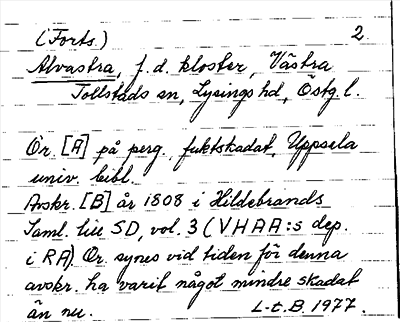 (Forts.) 2.
Alvastra, f.d. kloster, Västra
Tollstads sn, Lysings hd, Östg. l.
Or. [A] på perg., fuktskadat, Uppsala
univ. bibl.
Avskr. [B] år 1808 i Hildebrands
Saml. till SD, vol. 3 (VHAA:s dep.
i RA). Or. synes vid tiden för denna
avskr. ha varit något mindre skadat
än nu. L-t. B. 1977.